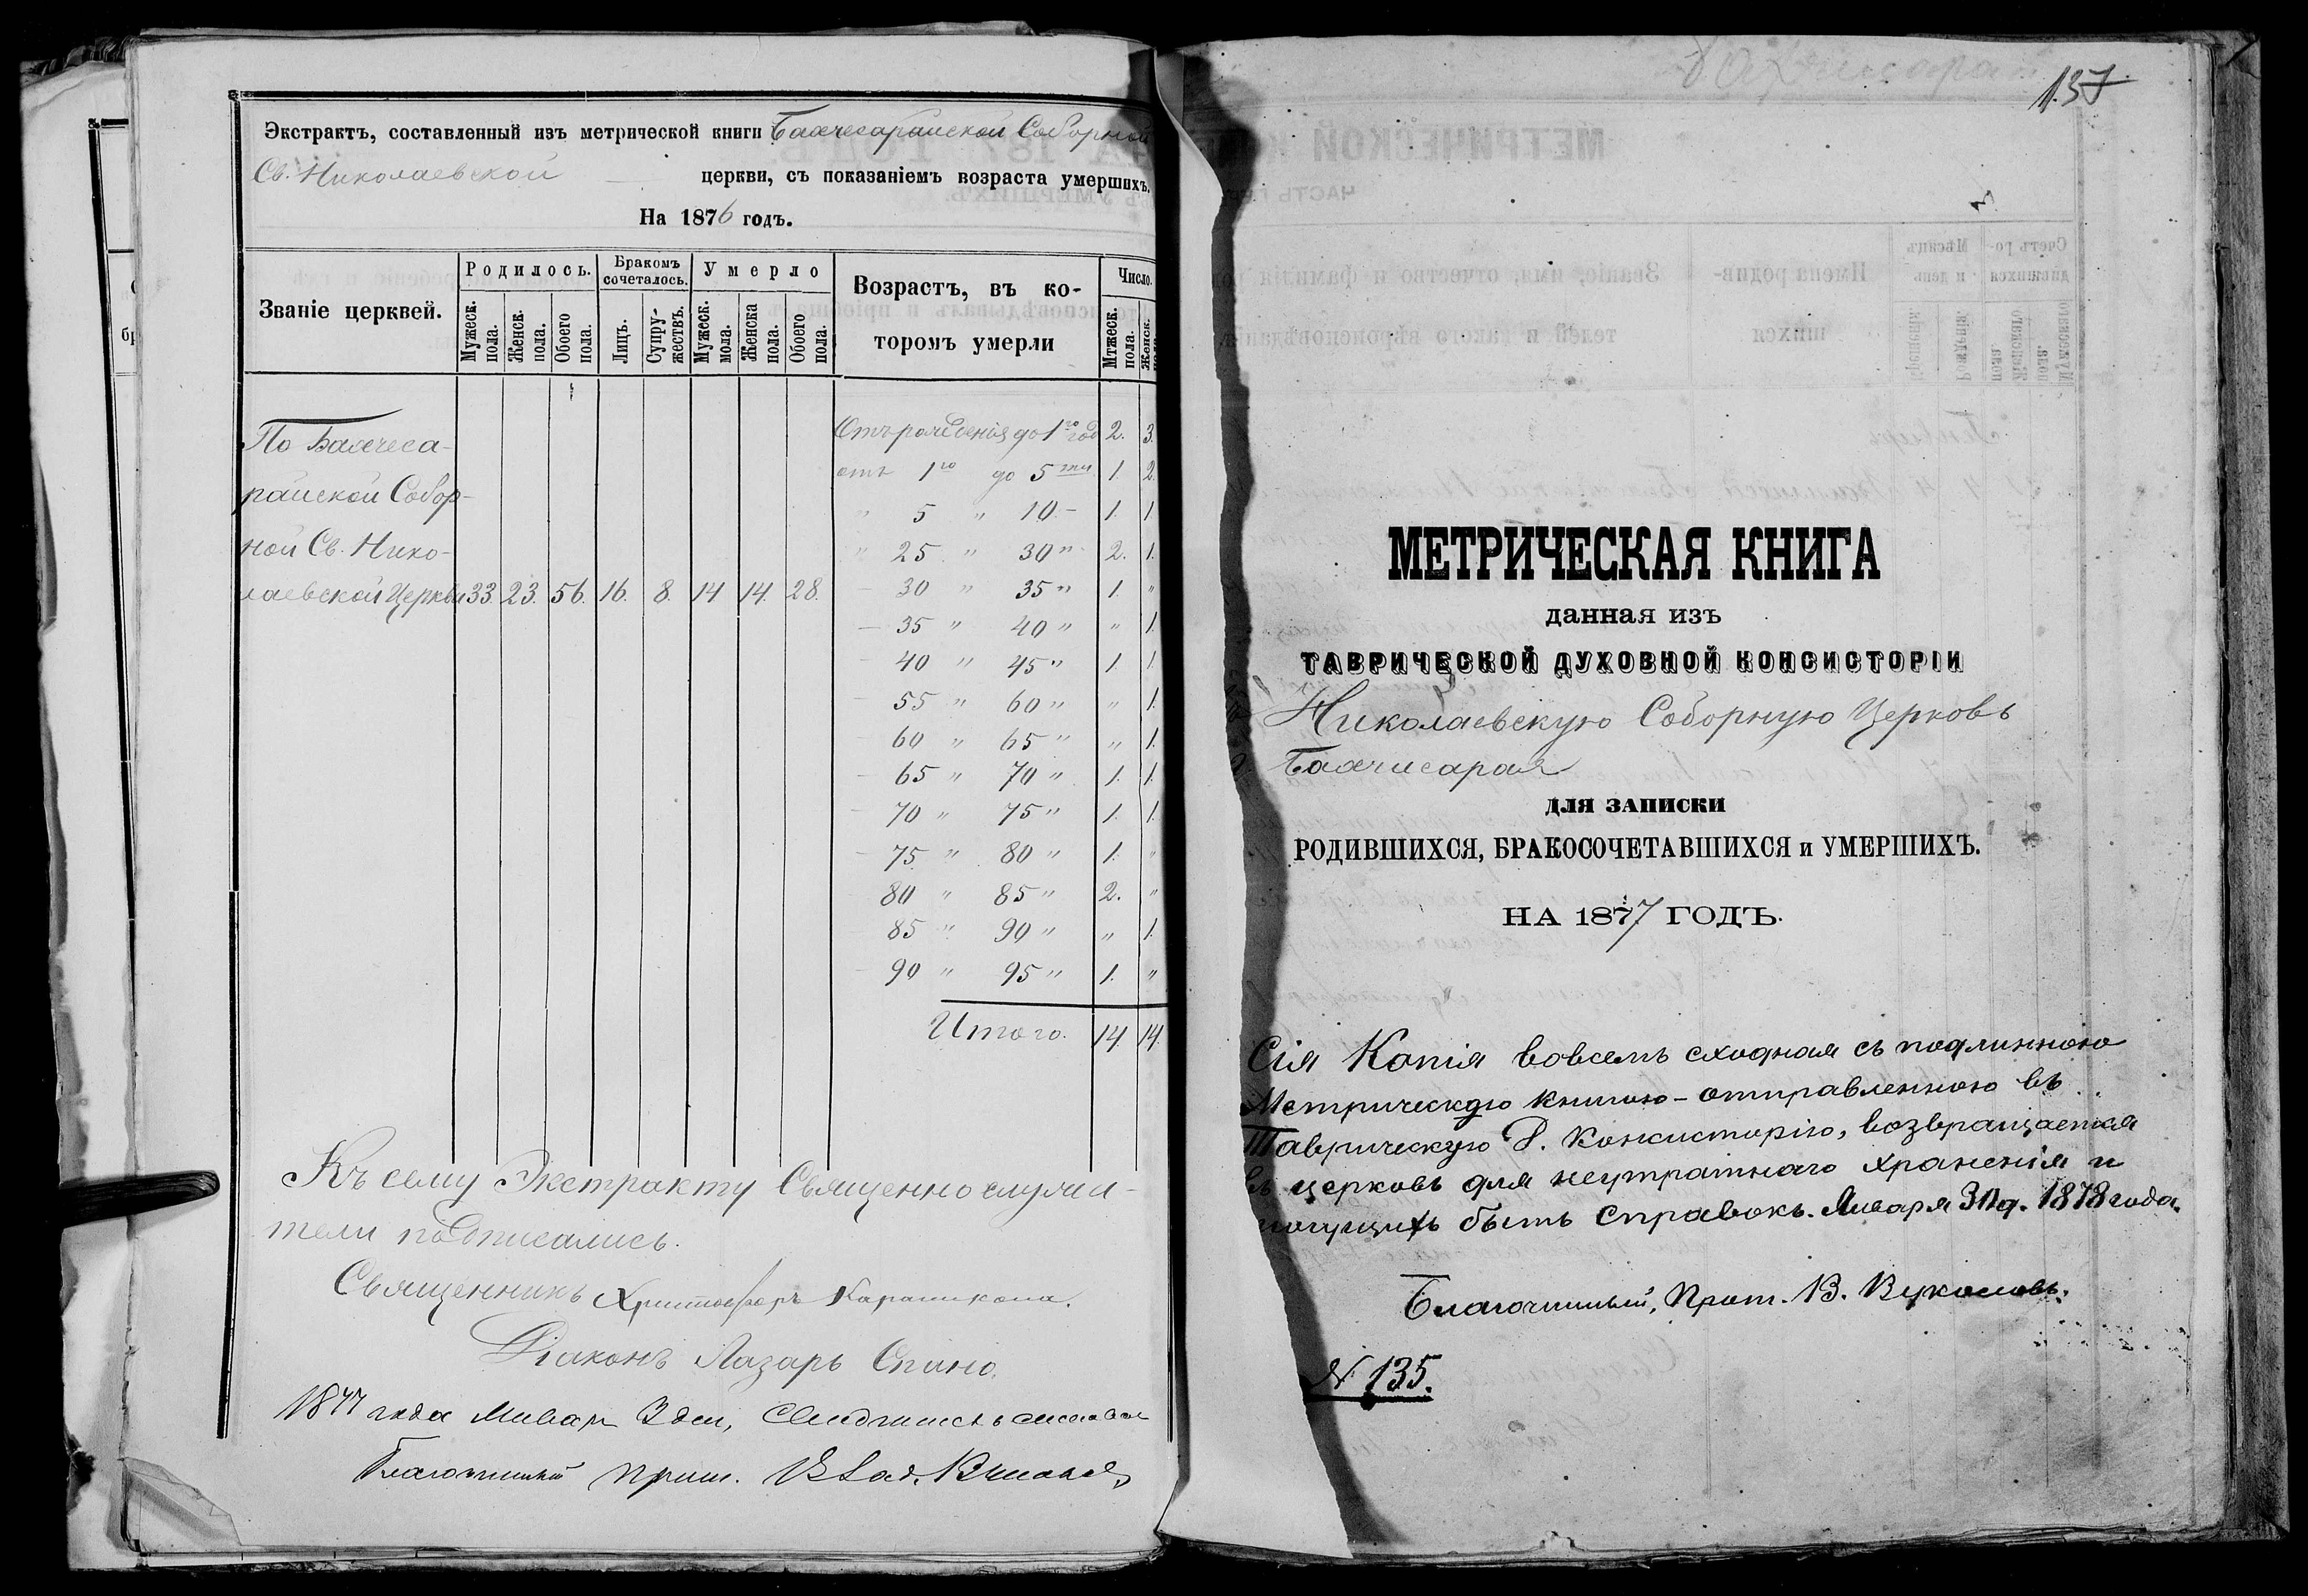 Экстрактъ, составленный изъ метрической книги Бахчесарайской Соборной
Св. Николаевской церкви, съ показаніемъ возраста умершихъ.
На 1876 годъ.
Званіе церквей.
Родилось.
Бракомъ сочеталось.
Умерло
Возрастъ, въ ко-
торомъ умерли
Число.
Мужеск. пола.
Женск. пола.
Обоего пола.
Лицъ.
Супру-
жествъ.
Мужеск. мола.
Женска пола.
Обоего пола.
Мтжеск. пола.
Женск.
По Бахчеса-
райской Собор-
ной Св. Нико-
лаевской Церкви 33. 23. 56. 16. 8. 14 14. 28.
Отъ рожденія до 1го год 2. 3.
отъ 1го до 5ти 1. 2.
" 5 " 10 - 1. 1
" 25 " 30 " 2. 1.
30 " 35 " 1. "
35 " 40 " " 1.
40 " 45 " 1. 1.
55 " 60 " " 1.
60 " 65 " " 1.
65 " 70 " 1. 1.
70 " 75 " 1. 1.
75 " 80 " 1. "
80 " 85 " 2. "
85 " 90 " " 1.
90 " 95 " 1. "
Итого. 14. 14.
Къ сему Экстракту Священнослужи-
тели подписались.
Священникъ Христофоръ
Діаконъ Лазарь Спано.
1877 года Января 3 дня,
Благочинный прот.
137
МЕТРИЧЕСКАЯ КНИГА
данная изъ
ТАВРИЧЕСКОЙ ДУХОВНОЙ КОНСИСТОРІИ
Николаевскую Соборную Церковь
Бахчисарая
ДЛЯ ЗАПИСКИ
РОДИВШИХСЯ, БРАКОСОЧЕТАВШИХСЯ и УМЕРШИХЪ.
НА 1877 ГОДЪ.
Сія Копія вовсемъ сходная съ подлинною
Метрическою книгою - отправленною въ
Таврическую Д. Консисторію, возвращается
въ церковь для неутратнаго храненія и
могущихъ быть справокъ. Января 30 д. 1878 года.
Благочинный, Прот. В. Вуколовъ.
№ 135.